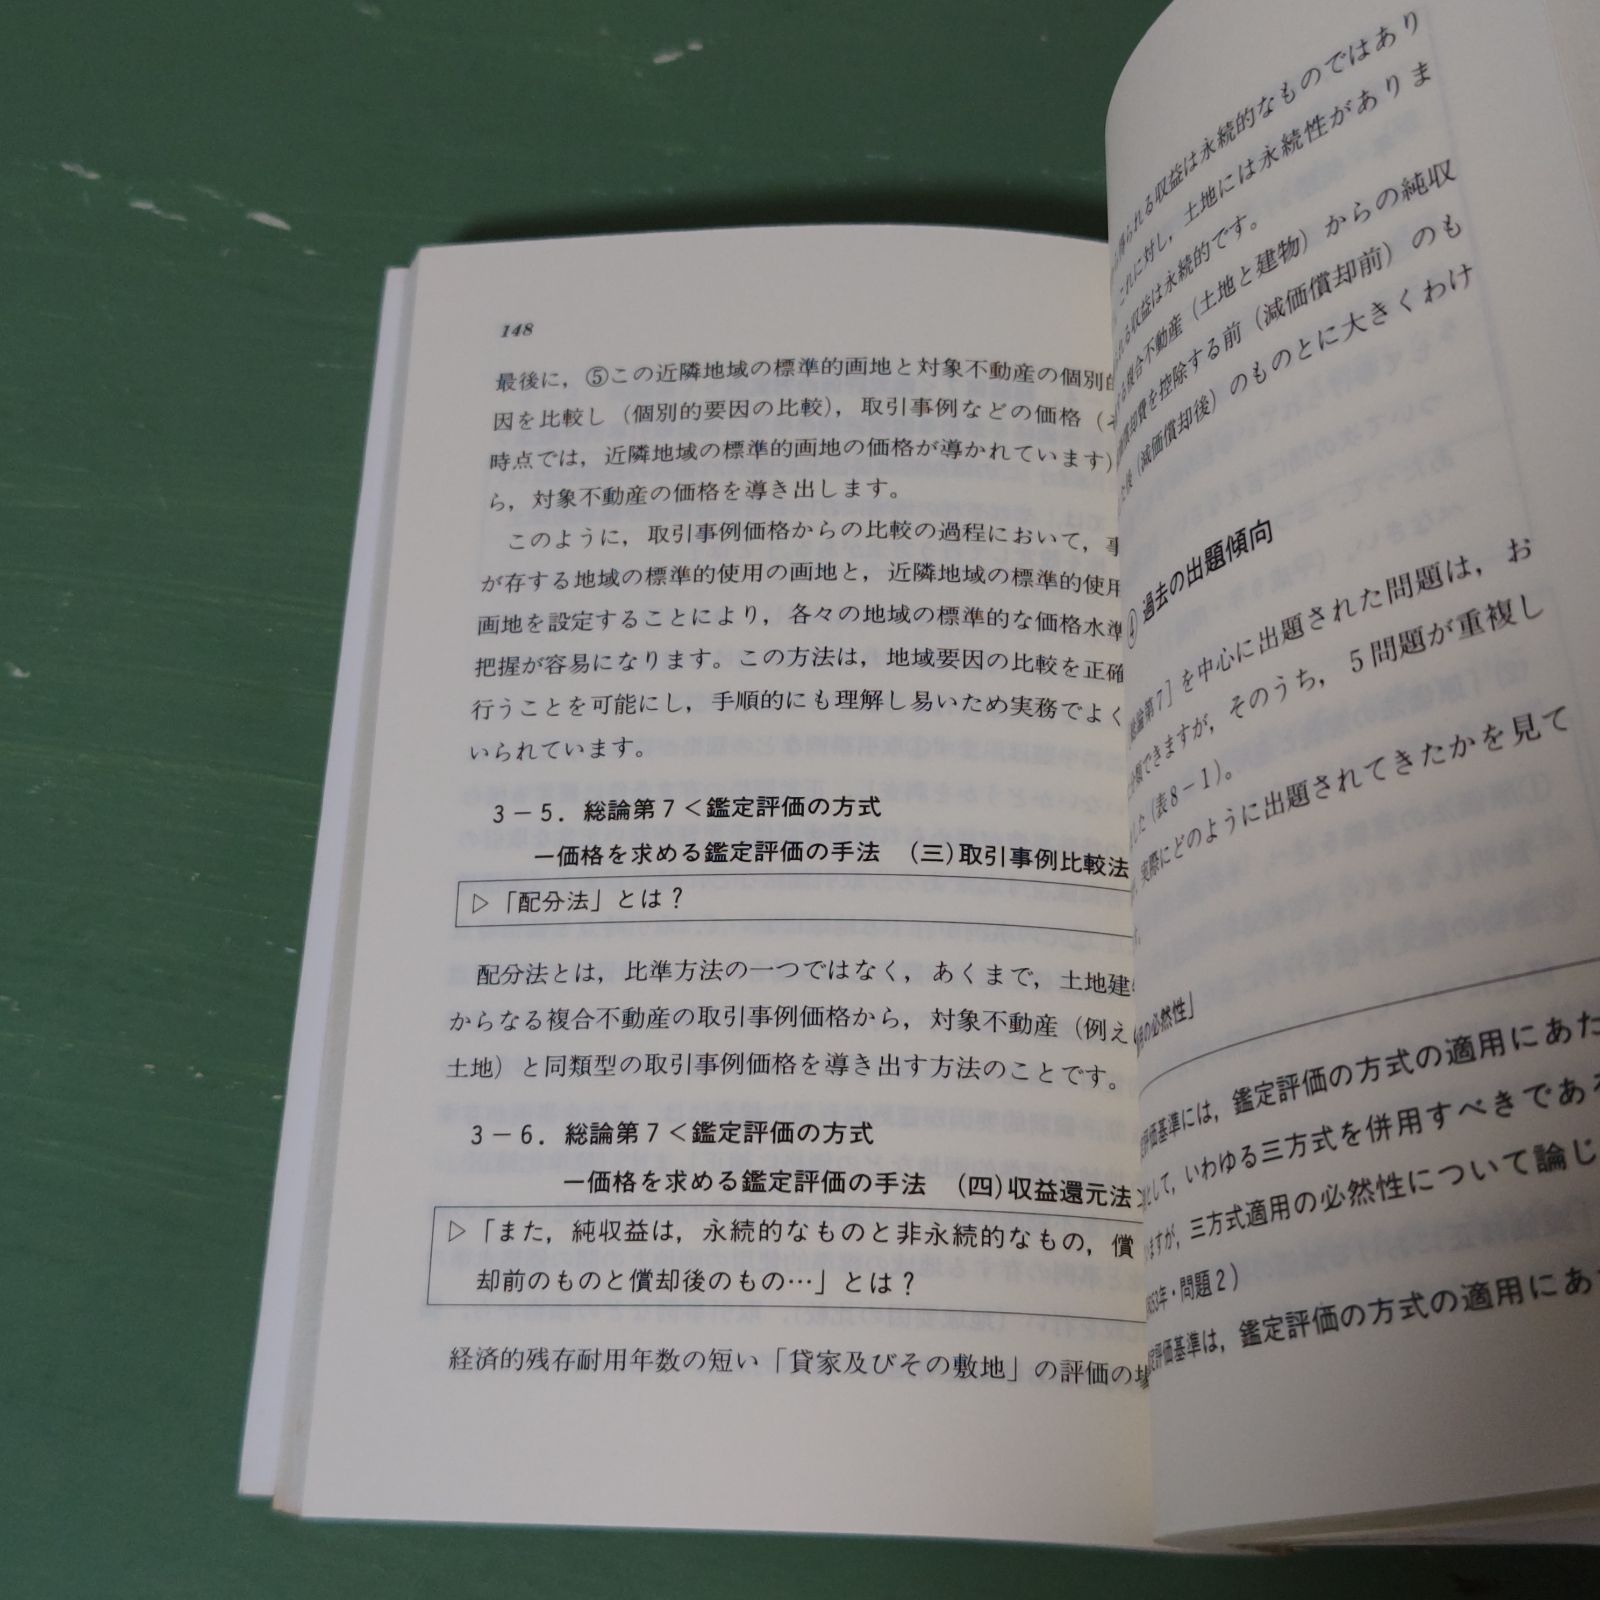 148
最後に，⑤この近隣地域の標準的画地と対象不動産の個別
因を比較し（個別的要因の比較），取引事例などの価格（
時点では，近隣地域の標準的画地の価格が導かれています）
ら，対象不動産の価格を導き出します。
このように，取引事例価格からの比較の過程において，事
が存する地域の標準的使用の画地と，近隣地域の標準的使用
画地を設定することにより，各々の地域の標準的な価格水準
把握が容易になります。この方法は，地域要因の比較を正確
行うことを可能にし，手順的にも理解し易いため実務でよく
いられています。
3－5．総論第7＜鑑定評価の方式
―価格を求める鑑定評価の手法　(三)取引事例比較法
▷「配分法」とは？
配分法とは，比準方法の一つではなく，あくまで，土地建
からなる複合不動産の取引事例価格から，対象不動産（例え
土地）と同類型の取引事例価格を導き出す方法のことです。
3－6．総論第7＜鑑定評価の方式
―価格を求める鑑定評価の手法　(四)収益還元法
▷「また，純収益は，永続的なものと非永続的なもの，償
却前のものと償却後のもの…」とは？
経済的残存耐用年数の短い「貸家及びその敷地」の評価の場
得られる収益は永続的なものではあり
これに対し，土地には永続性がありま
れる収益は永続的です。
る複合不動産（土地と建物）からの純収
償却費を控除する前（減価償却前）のも
た後（減価償却後）のものとに大きくわけ
④ 過去の出題傾向
総論第7］を中心に出題された問題は，お
分類できますが，そのうち，5問題が重複し
した（表8－1）。
実際にどのように出題されてきたかを見て
の必然性」
評価基準には，鑑定評価の方式の適用にあた
として，いわゆる三方式を併用すべきである
ますが，三方式適用の必然性について論じ
53年・問題2）
定評価基準は，鑑定評価の方式の適用にあ